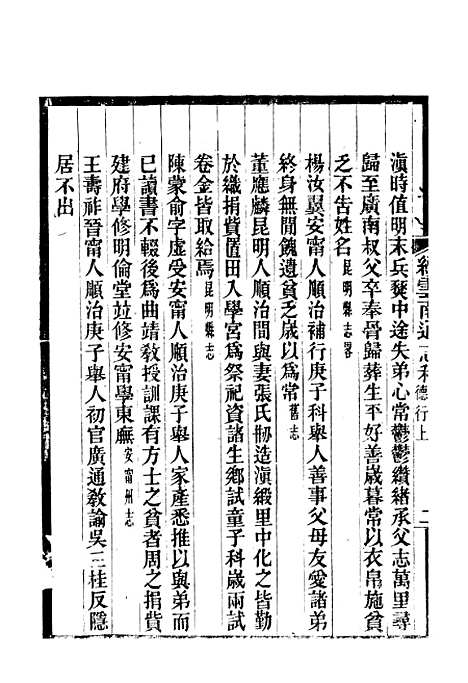 續雲南通志稿 德行上 二
滇時值明末兵燹中途失弟心常鬱鬱纘緒承父志萬里尋
歸至廣南叔父卒奉骨歸葬生平好善歲暮常以衣帛施貧
乏不告姓名昆明縣志畧
楊汝翼安甯人順治補行庚子科舉人善事父母友愛諸弟
終身無間餽遺貧乏歲以爲常舊志
董應麟昆明人順治間與妻張氏刱造滇緞里中化之皆勤
於織捐貲置田入學宮爲祭祀資諸生鄉試童子科歲兩試
卷金皆取給焉昆明縣志
陳蒙俞字虛受安甯人順治庚子舉人家產悉推以與弟而
已讀書不輟後爲曲靖敎授訓課有方士之貧者周之捐貲
建府學修明倫堂並修安甯學東廡安甯州志
王壽祚晉甯人順治庚子舉人初官廣通敎諭吳三桂反隱
居不出